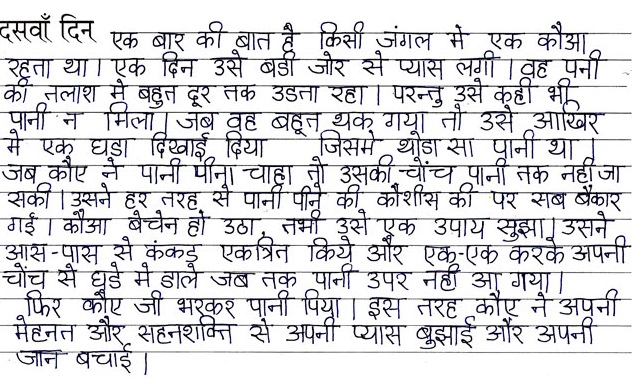 दसवाँ दिन एक बार की बात है किसी जंगल मे एक कौआ
रहता था। एक दिन उसे बडी जोर से प्यास लगी। वह पनी
की तलाश मे बहुत दूर तक उडता रहा। परन्तु उसे कही भी
पानी न मिला। जब वह बहूत थक गया तो उसे आखिर
मे एक घडा दिखाई दिया जिसमे थोडा सा पानी था।
जब कौए ने पानी पीना चाहा तो उसकी चोंच पानी तक नही जा
सकी। उसने हर तरह से पानी पीने की कौशीस की पर सब बेकार
गई। कौआ बेचेन हो उठा, तभी उसे एक उपाय सुझा। उसने
आस-पास से कंकड एकत्रित किये और एक-एक करके अपनी
चोंच से घडे मे डाले जब तक पानी उपर नही आ गया।
फिर कौए जी भरकर पानी पिया। इस तरह कौए ने अपनी
मेहनत और सहनशक्ति से अपनी प्यास बुझाई और अपनी
जान बचाई।